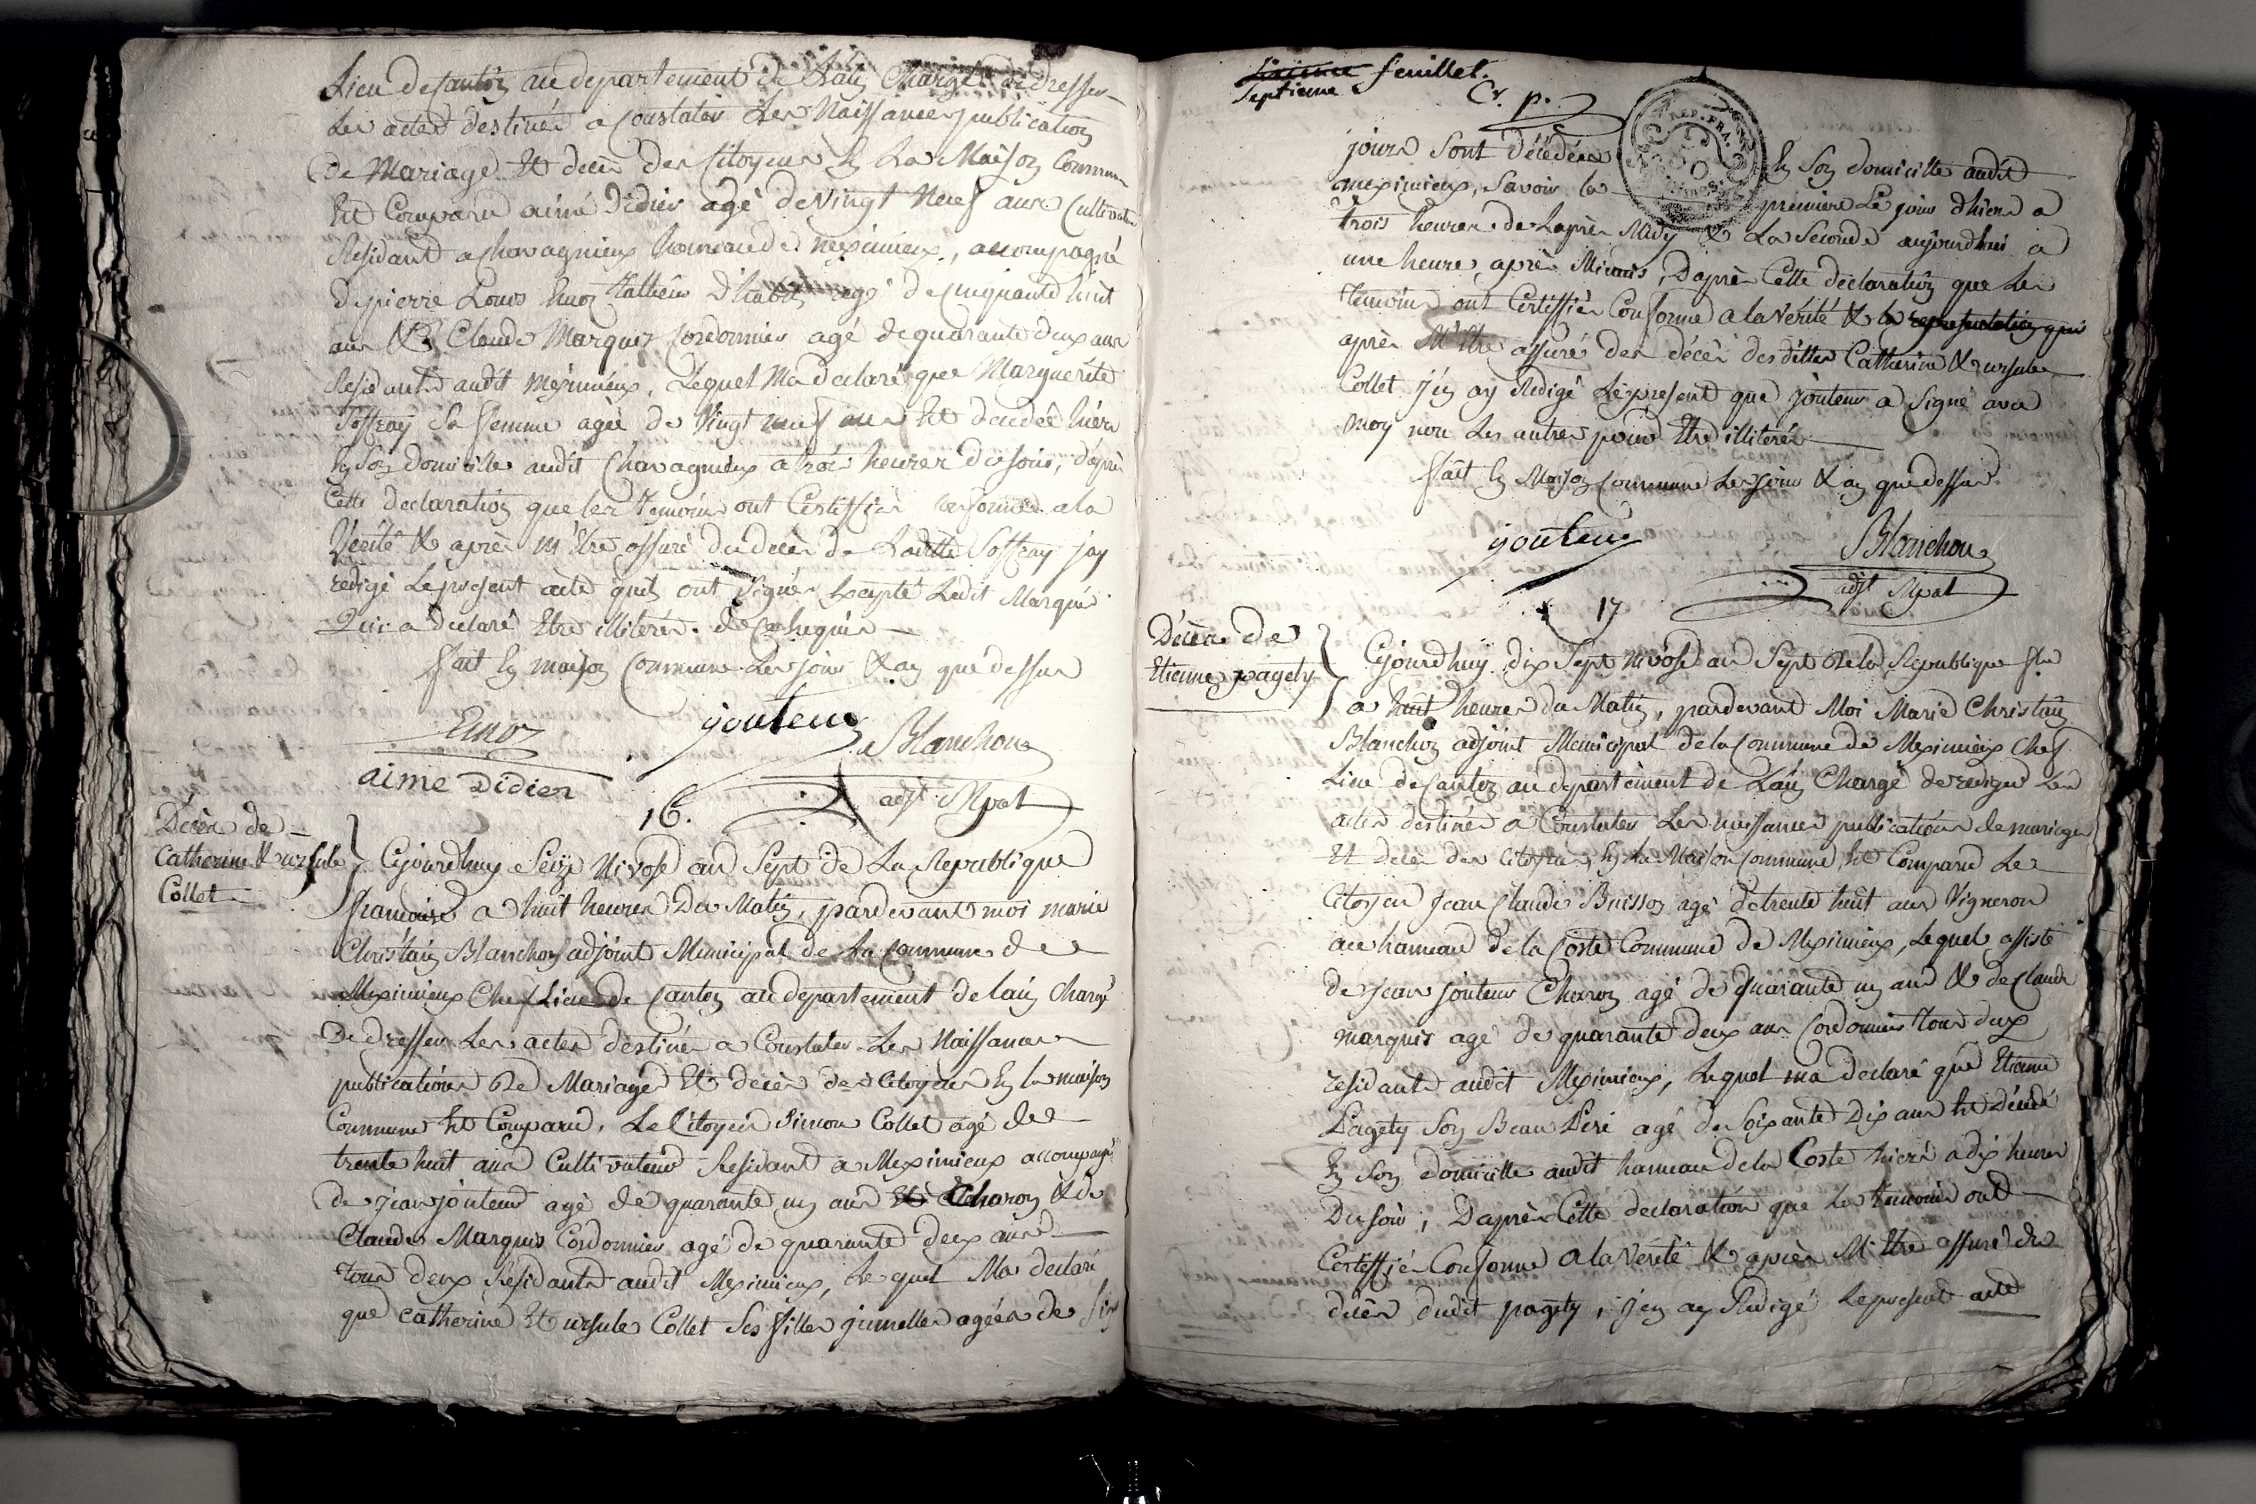 Lieu de Canton au departement de Lain Chargé de dresser
Les actes destinés a Constater Les Naissances publication
de Mariage Et decès des Citoyens En La Maison Commune
Est Comparu aimé Didier agé de Vingt Neuf ans Cultivateur
Residant a Chavagnieux hameau de Meximieux, accompagné
De pierre Louis Enoz Tallieur D'habits agé de Cinquante huit
ans & Claude Marquis Cordonnier agé de quarante deux ans
Residants audit Meximieux, Lequel Ma declaré que Marguérite
Joffray Sa femme agée de Vingt neuf ans Est decedée hier
En Son domicille audit Chavagnieux a trois heures du soir, d'après
Cette declaration que les temoins ont Certiffiés Conforme a la
Vérité & après m'Etre assuré du decès de Laditte Joffray jay
redigé Le present acte quils ont Signés Excepté Ledit Marquis
Qui a declaré Etre illiteré. de Ce Requis
fait En maison Commune Les jour & an que dessus
Enoz jouteur Blanchon
aime Didier adjt Mpal
16.
Décès de
Catherine & ursule
Collet
Cejourdhuy Seize Nivose an Sept de La Republique
francaise a huit heures Du Matin, pardevant moi marie
Christain Blanchon adjoint Municipal de La Commune de
Meximieux Chef Lieu de Canton au departement de lain Chargé
De dresser Les actes destinés a Constater Les Naissances
publications De Mariages Et decès des Citoyens En la maison
Commune Est Comparu, Le Citoyen Simon Collet agé de
trente huit ans Cultivateur Residant a Meximieux accompagné
de jean jouteur agé de quarante un ans Charon & de
Claude Marquis Cordonnier agé de quarante deux ans
tous deux Residants audit Meximieux, Lequel Ma declaré
que Catherine Et ursule Collet Ses filles jumelles agées de Six
Sixieme feuillet.
Septieme
Cr. p.
REP. FRA.
jours Sont décédées En Son domicille audit
meximieux, Savoir la premiere Le jour d'hier a
trois heures de Laprès Midy & La Seconde aujourdhui a
une heure après Minuit, D'après Cette declaration que Les
temoins ont Certiffiés Conforme a la Vérité & la representation qui
après M'Etre assuré des décès desdittes Catherine & ursule
Collet j'en ay Redigé Le present que jouteur a Signé avec
moy non Les autres pour Etre illiterés
fait En Maison Commune Les jour & an que dessus
jouteur Blanchon
adjt Mpal
17
Décès de
Etienne pagety
Cejourdhuy dix Sept Nivôse an Sept de la Republique fse
a huit heures du Matin, pardevant Moi Marie Christain
Blanchon adjoint Municipal de la Commune de Meximieux Chef
Lieu de Canton au departement de Lain Chargé de rediger Les
actes destinés a Constater Les naissances publications de mariages
Et decès des Citoyens, En La Maison Commune, Est Comparu Le
Citoyen Jean Claude Buisson agé de trente huit ans Vigneron
au hameau de la Coste Commune de Meximieux, Lequel assisté
de jean jouteur Charron agé de quarante un ans & de Claude
marquis agé de quarante deux ans Cordonnier tous deux
residants audit Meximieux, Lequel ma declaré que Etienne
Pagety Son Beau Peré agé de Soixante Dix ans Est Décédé
En Son domicille audit hameau de la Coste hieré a dix heures
Du soir; D'après Cette declaration que Les temoins ont
Certiffiés Conforme a la Vérité & après M'Etre assuré du
decès dudit pagety, j'en ay Redigé Le present acte